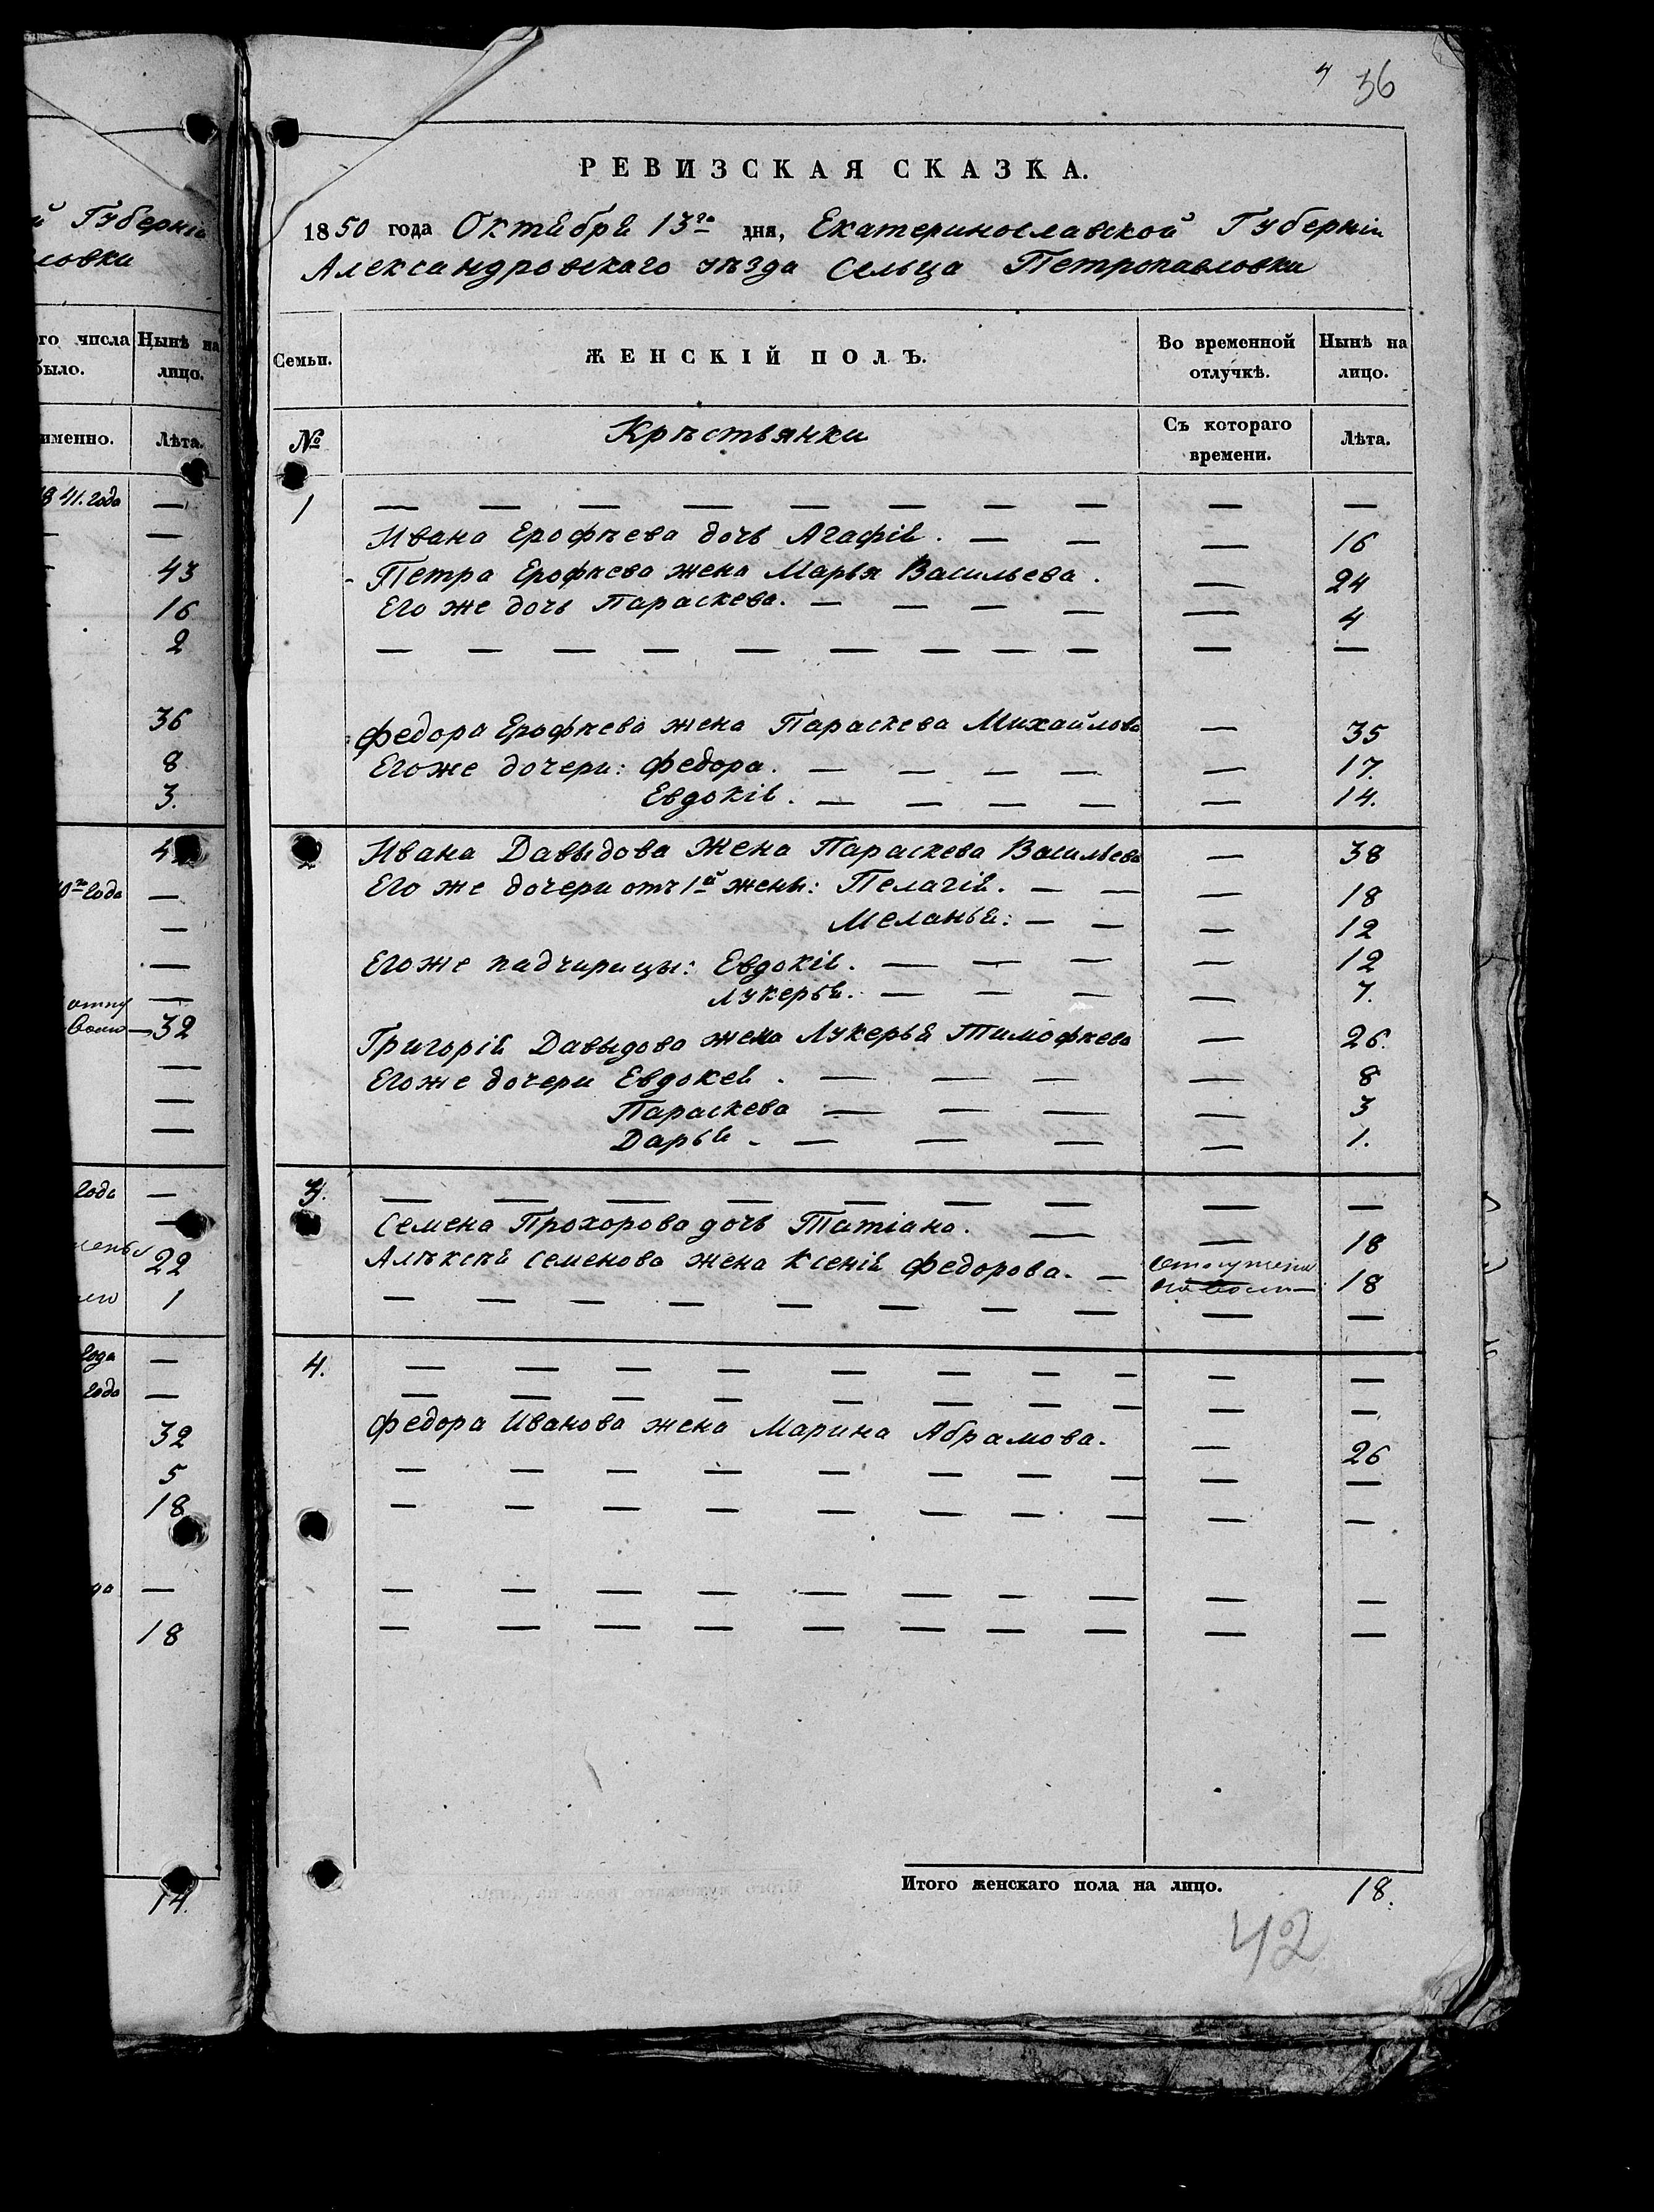 4 36
РЕВИЗСКАЯ СКАЗКА.
1850 года Октября 13го дня, Екатеринославской Губерніи
Александровскаго уѣзда Сельца Петропавловки
Семьи.
ЖЕНСКІЙ ПОЛЪ.
Во временной отлучкѣ.
Нынѣ на лицо.
№
Крѣстьянки
Съ котораго времени.
Лѣта.
1 — — — — — — — — — —
Ивана Ерофѣева дочь Агафія. — — — 16
Петра Ерофѣева жена Марья Васильева. — 24
Его же дочь Параскева. — — — — — 4
— — — — — — — — — — —
Федора Ерофѣева жена Параскева Михайлова — 35
Егоже дочери: Федора. — — — — — 17.
Евдокія. — — — — — 14.
2 Ивана Давыдова жена Параскева Васильева — 38
Его же дочери отъ 1й жены: Пелагія. — — — 18
Меланья: — — — 12
Егоже падчирицы: Евдокія. — — — — 12
Лукерья. — — — — 7.
Григорія Давыдова жена Лукерья Тимофѣева — 26.
Егоже дочери Евдокея. — — — — 8
Параскева — — — — 3
Дарья. — — — — 1.
3. — — — — — — — — —
Семена Прохорова дочь Татіана. — — 18
Алѣксѣя Семенова жена Ксенія Федорова. — отпущена
на волю — 18
— — — — — — — — — — —
4. — — — — — — — — — —
— — — — — — — — — —
Федора Иванова жена Марина Абрамова. — 26
— — — — — — — — — —
— — — — — — — — — —
— — — — — — — — — —
— — — — — — — — — —
Итого женскаго пола на лицо. 18.
42
й Губерніи
ловки
го числа было.
Нынѣ на лицо.
именно.
Лѣта.
1841. года —
—
43
16
2
36
8
3.
4
года —
—
—
—
32
—
—
—
года —
—
22
1
года —
года —
32
5
18
—
18
14.